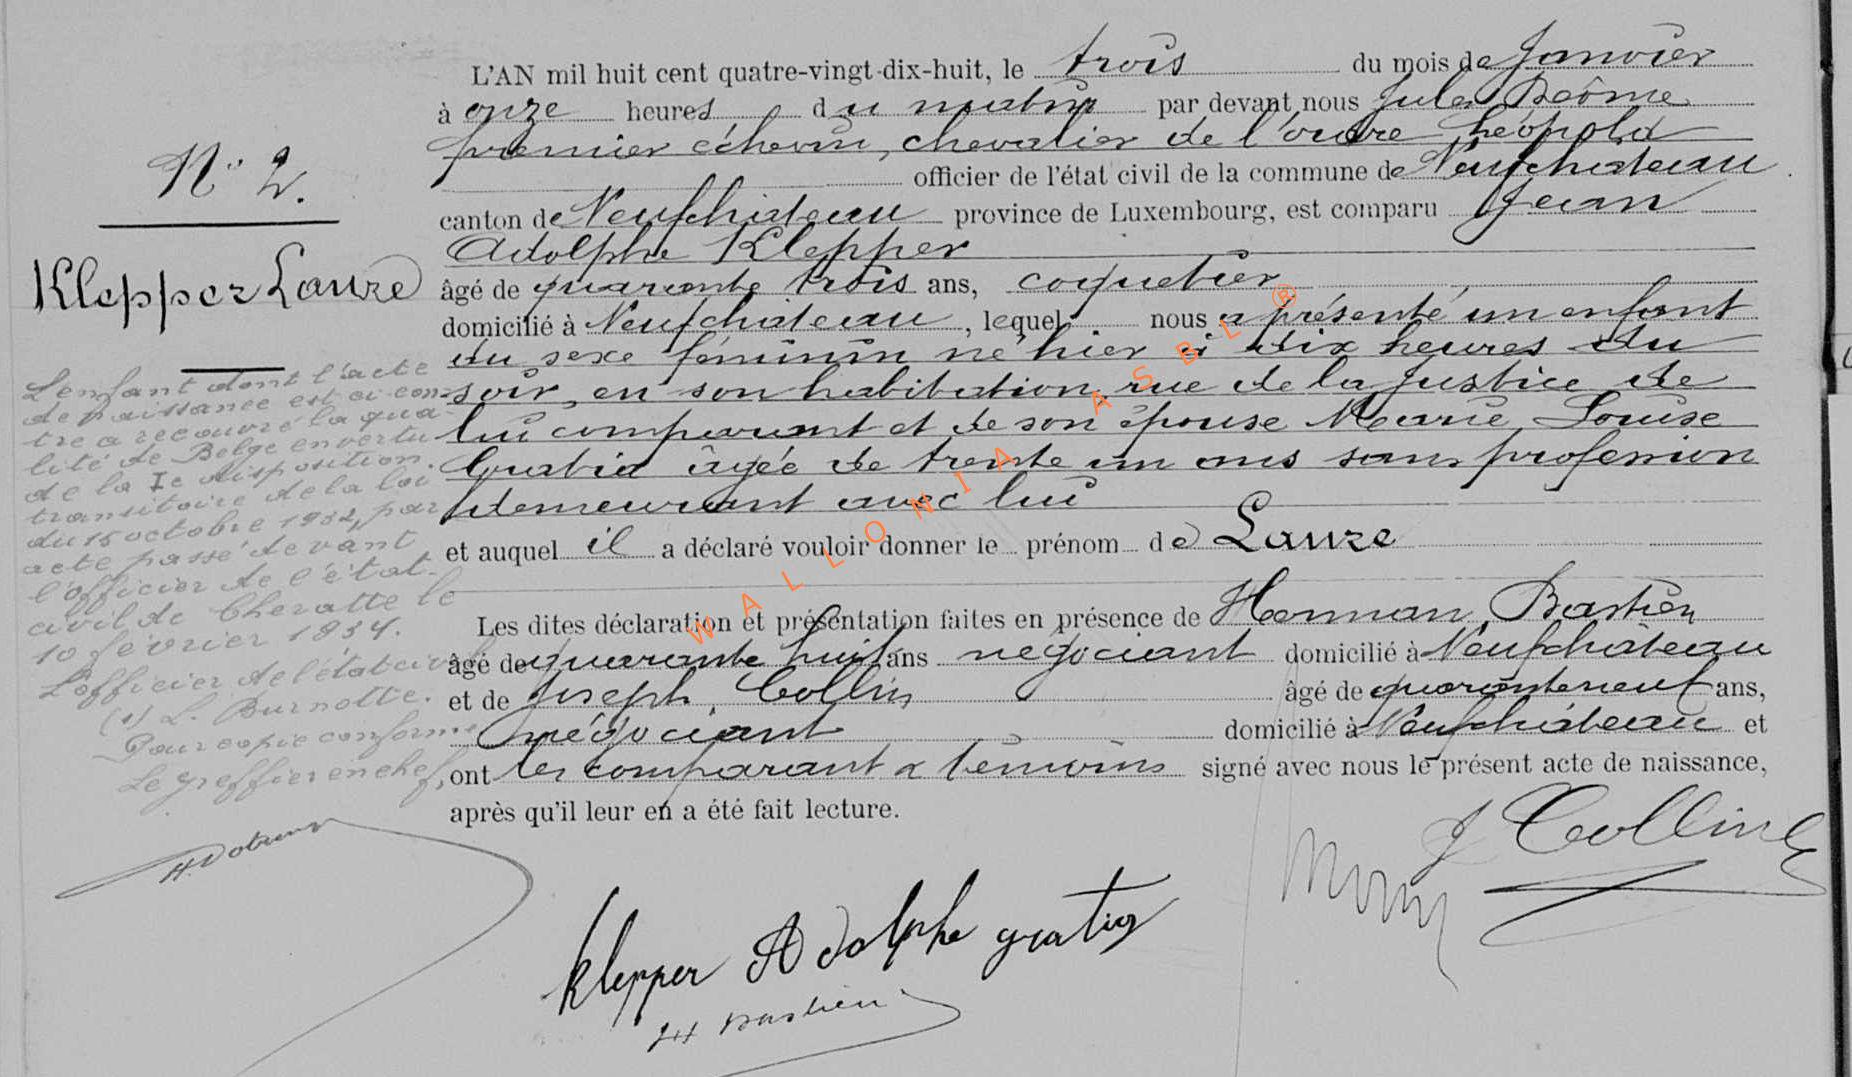 N° 2.
Klepper Laure
L'enfant dont l'acte
de naissance est ci-con-
tre a recouvré la qua-
lité de Belge en vertu
de la Ie disposition
transitoire de la loi
du 15 octobre 1932, par
acte passé devant
l'officier de l'état-
civil de Cheratte le
10 février 1934.
L'officier de l'état civil
(s) L. Burnotte.
Pour copie conforme
Le greffier en chef,
L'AN mil huit cent quatre-vingt-dix-huit, le trois du mois de Janvier
à onze heures du matin par devant nous Jules
premier échevin, chevalier de l'ordre Léopold
officier de l'état civil de la commune de Neufchâteau
canton de Neufchâteau province de Luxembourg, est comparu Jean
Adolphe Klepper
âgé de quarante trois ans, coquetier
domicilié à Neufchâteau, lequel nous a présenté un enfant
du sexe féminin né hier à dix heures du
soir, en son habitation rue de la Justice de
lui comparant et de son épouse Marie Louise
Gratia âgée de trente un ans sans profession
demeurant avec lui
et auquel il a déclaré vouloir donner le prénom de Laure
Les dites déclaration et présentation faites en présence de Herman Bastien
âgé de quarante huit ans négociant domicilié à Neufchâteau
et de Joseph Collin âgé de quarante neuf ans,
négociant domicilié à Neufchâteau et
ont les comparant & témoins signé avec nous le présent acte de naissance,
après qu'il leur en a été fait lecture.
J Collin
Klepper Adolphe gratia
JH Bastien
WALLONIA ASBL ®